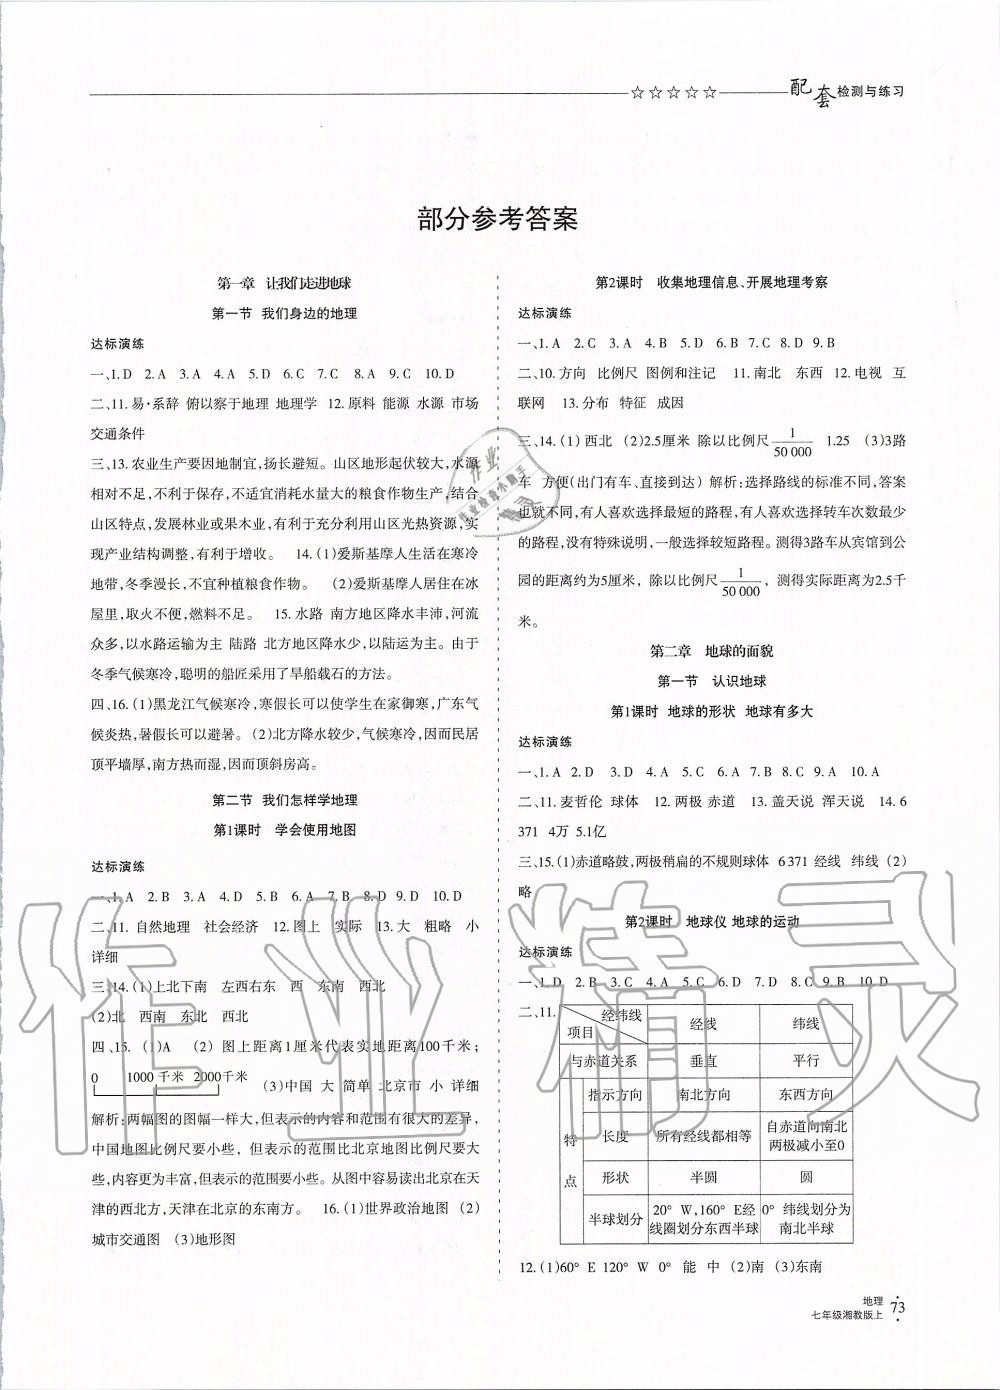 ☆☆☆☆☆ 配套检测与练习
部分参考答案
第一章 让我们走进地球
第一节 我们身边的地理
达标演练
一、1.D 2.A 3.A 4.A 5.D 6.C 7.C 8.A 9.C 10.D
二、11.易·系辞 俯以察于地理 地理学 12.原料 能源 水源 市场
交通条件
三、13.农业生产要因地制宜,扬长避短。山区地形起伏较大,水源
相对不足,不利于保存,不适宜消耗水量大的粮食作物生产,结合
山区特点,发展林业或果木业,有利于充分利用山区光热资源,实
现产业结构调整,有利于增收。 14.(1)爱斯基摩人生活在寒冷
地带,冬季漫长,不宜种植粮食作物。 (2)爱斯基摩人居住在冰
屋里,取火不便,燃料不足。 15.水路 南方地区降水丰沛,河流
众多,以水路运输为主 陆路 北方地区降水少,以陆运为主。由于
冬季气候寒冷,聪明的船匠采用了旱船载石的方法。
四、16.(1)黑龙江气候寒冷,寒假长可以使学生在家御寒,广东气
候炎热,暑假长可以避暑。(2)北方降水较少,气候寒冷,因而民居
顶平墙厚,南方热而湿,因而顶斜房高。
第二节 我们怎样学地理
第1课时 学会使用地图
达标演练
一、1.A 2.B 3.A 4.D 5.B 6.B 7.D 8.D 9.D 10.D
二、11.自然地理 社会经济 12.图上 实际 13.大 粗略 小
详细
三、14.(1)上北下南 左西右东 西 东南 西北
(2)北 西南 东北 西北
四、15.(1)A (2)图上距离1厘米代表实地距离100千米;
0 1000千米 2000千米 (3)中国 大 简单 北京市 小 详细
解析:两幅图的图幅一样大,但表示的内容和范围有很大的差异,
中国地图比例尺要小些, 但表示的范围比北京地图比例尺要大
些,内容更为丰富,但表示的范围要小些。从图中容易读出北京在天
津的西北方,天津在北京的东南方。 16.(1)世界政治地图 (2)
城市交通图 (3)地形图
第2课时 收集地理信息、开展地理考察
达标演练
一、1.A 2.C 3.A 4.B 5.D 6.B 7.C 8.D 9.B
二、10.方向 比例尺 图例和注记 11.南北 东西 12.电视 互
联网 13.分布 特征 成因
三、14.(1)西北 (2)2.5厘米 除以比例尺1/50 000 1.25 (3)3路
车 方便(出门有车、直接到达) 解析:选择路线的标准不同,答案
也就不同,有人喜欢选择最短的路程,有人喜欢选择转车次数最少
的路程,没有特殊说明,一般选择较短路程。测得3路车从宾馆到公
园的距离约为5厘米, 除以比例尺1/50 000,测得实际距离为2.5千
米。
第二章 地球的面貌
第一节 认识地球
第1课时 地球的形状 地球有多大
达标演练
一、1.A 2.D 3.D 4.A 5.C 6.A 7.B 8.B 9.A 10.A
二、11.麦哲伦 球体 12.两极 赤道 13.盖天说 浑天说 14.6
371 4万 5.1亿
三、15.(1)赤道略鼓,两极稍扁的不规则球体 6 371 经线 纬线 (2)
略
第2课时 地球仪 地球的运动
达标演练
一、1.D 2.B 3.C 4.A 5.C 6.D 7.D 8.C 9.B 10.D
二、11.
经纬线 项目 经线 纬线
与赤道关系 垂直 平行
特点 指示方向 南北方向 东西方向
长度 所有经线都相等 自赤道向南北两极减小至0
形状 半圆 圆
半球划分 20°W,160°E经线圈划分东西半球 0°纬线划分为南北半球
12.(1)60°E 120°W 0° 能 中 (2)南 (3)东南
地理
七年级湘教版上 73
作业精灵